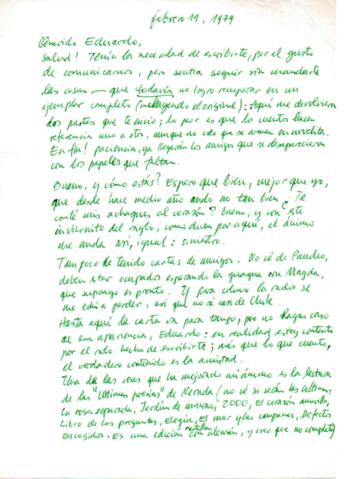 febrero 11, 1979
Querido Eduardo,
Salud! Tenía la necesidad de escribirte, por el gusto
de comunicarnos, pero sentía seguir sin mandarte
las cosas — que todavía no logro recuperar en un
ejemplar completo (incluyendo el original): Aquí me devolvieron
dos partes que te envío; lo peor es que los cuentos hacen
referencia uno a otro, aunque no creo que se arme en novelita.
En fin! paciencia, ya llegarán los amigos que se desaparecieron
con los papeles que faltan.
Bueno, y cómo estás? Espero que bien, mejor que yo,
que desde hace medio año ando no tan bien. Te
conté mis achaques al corazón? bueno, y con este
inviernito del siglo, como dicen por aquí, el ánimo
me anda así, igual: siniestro.
Tampoco he tenido cartas de amigos. No sé de Pancho,
deben estar ocupados esperando la guagua con Magda,
que supongo es pronto. Y para colmo la radio se
me echó a perder, así que no sé casi de Chile.
Hasta aquí la carta va para tango, pero no hagas caso
de esa apariencia, Eduardo: en realidad estoy contento
por el solo hecho de escribirte; más que lo que cuento,
el verdadero contenido es la amistad.
Una de las cosas que ha mejorado mi ánimo es la lectura
de las "Últimas poesías" de Neruda (no sé si serán las últimas,
La rosa separada, Jardín de invierno, 2000, El corazón amarillo,
Libro de las preguntas, Elegía, El mar y las campanas, Defectos
Escogidos. Es una edición castellano-alemán, y creo que no completa)